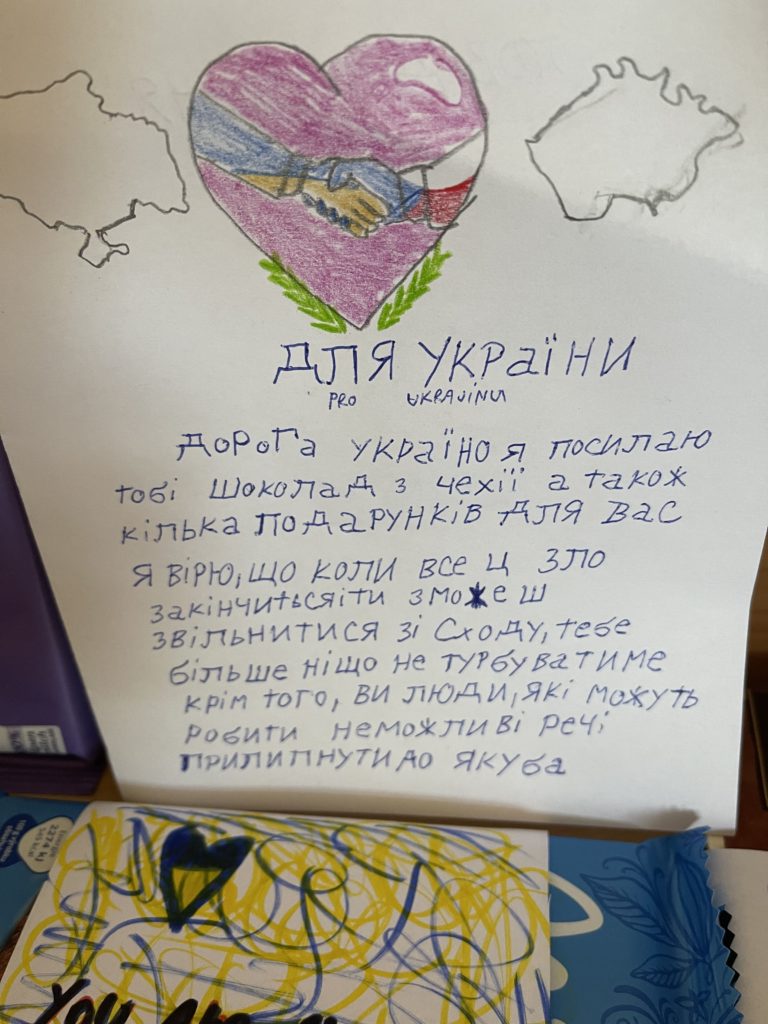 ДЛЯ УКРАЇНИ
PRO UKRAJINU
ДОРОГА УКРАЇНО Я ПОСИЛАЮ
ТОБІ ШОКОЛАД З ЧЕХІЇ А ТАКОЖ
КІЛЬКА ПОДАРУНКІВ ДЛЯ ВАС
Я ВІРЮ, ЩО КОЛИ ВСЕ Ц ЗЛО
ЗАКІНЧИТЬСЯІТИ ЗМОЖЕШ
ЗВІЛЬНИТИСЯ ЗІ СХОДУ, ТЕБЕ
БІЛЬШЕ НІЩО НЕ ТУРБУВАТИМЕ
КРІМ ТОГО, ВИ ЛЮДИ, ЯКІ МОЖУТЬ
РОБИТИ НЕМОЖЛИВІ РЕЧІ
ПРИЛИПНУТИ ДО ЯКУБА
2274 kJ
You